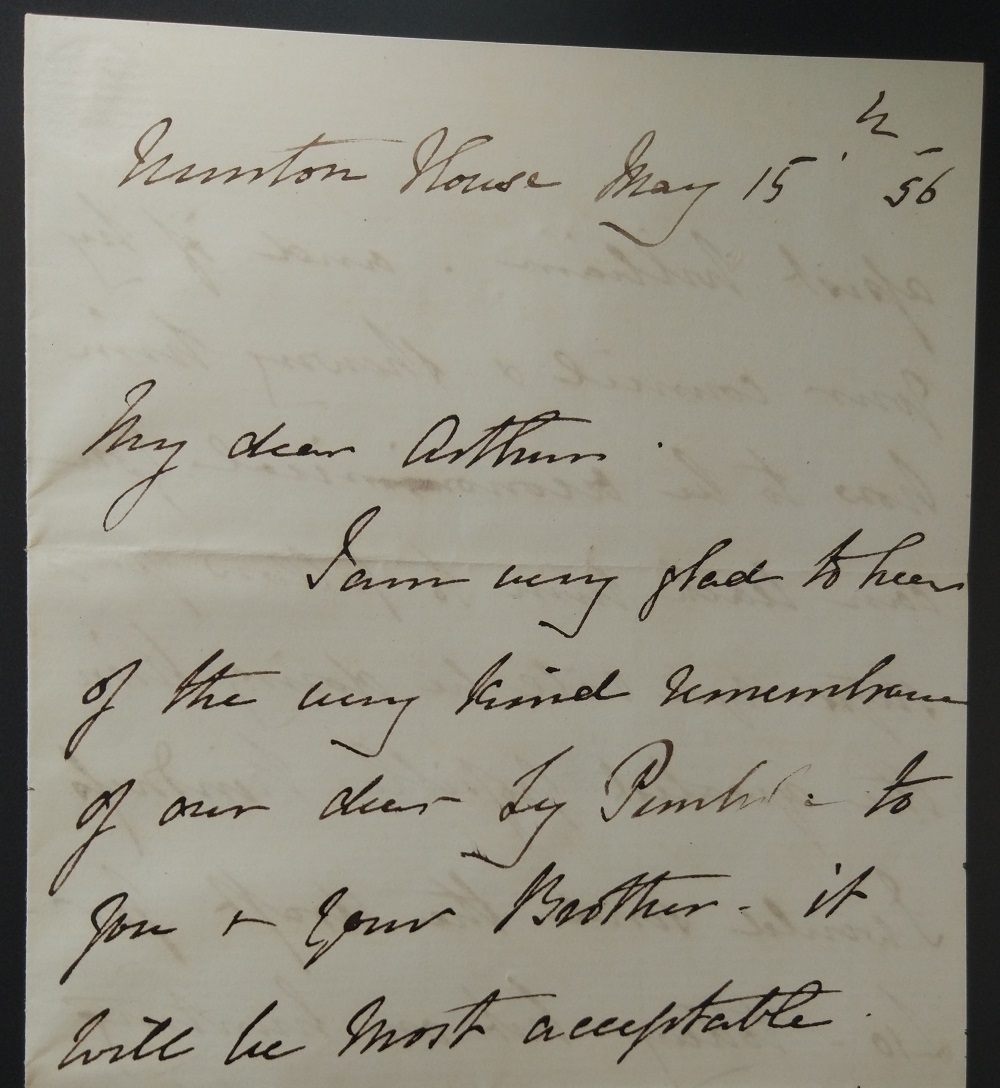 Nunton House May 15th 56
My dear Arthur.
I am very glad to hear
of the very kind remembrance
of our dear Ly Pemb: to
you + your Brother - it
will be most acceptable.